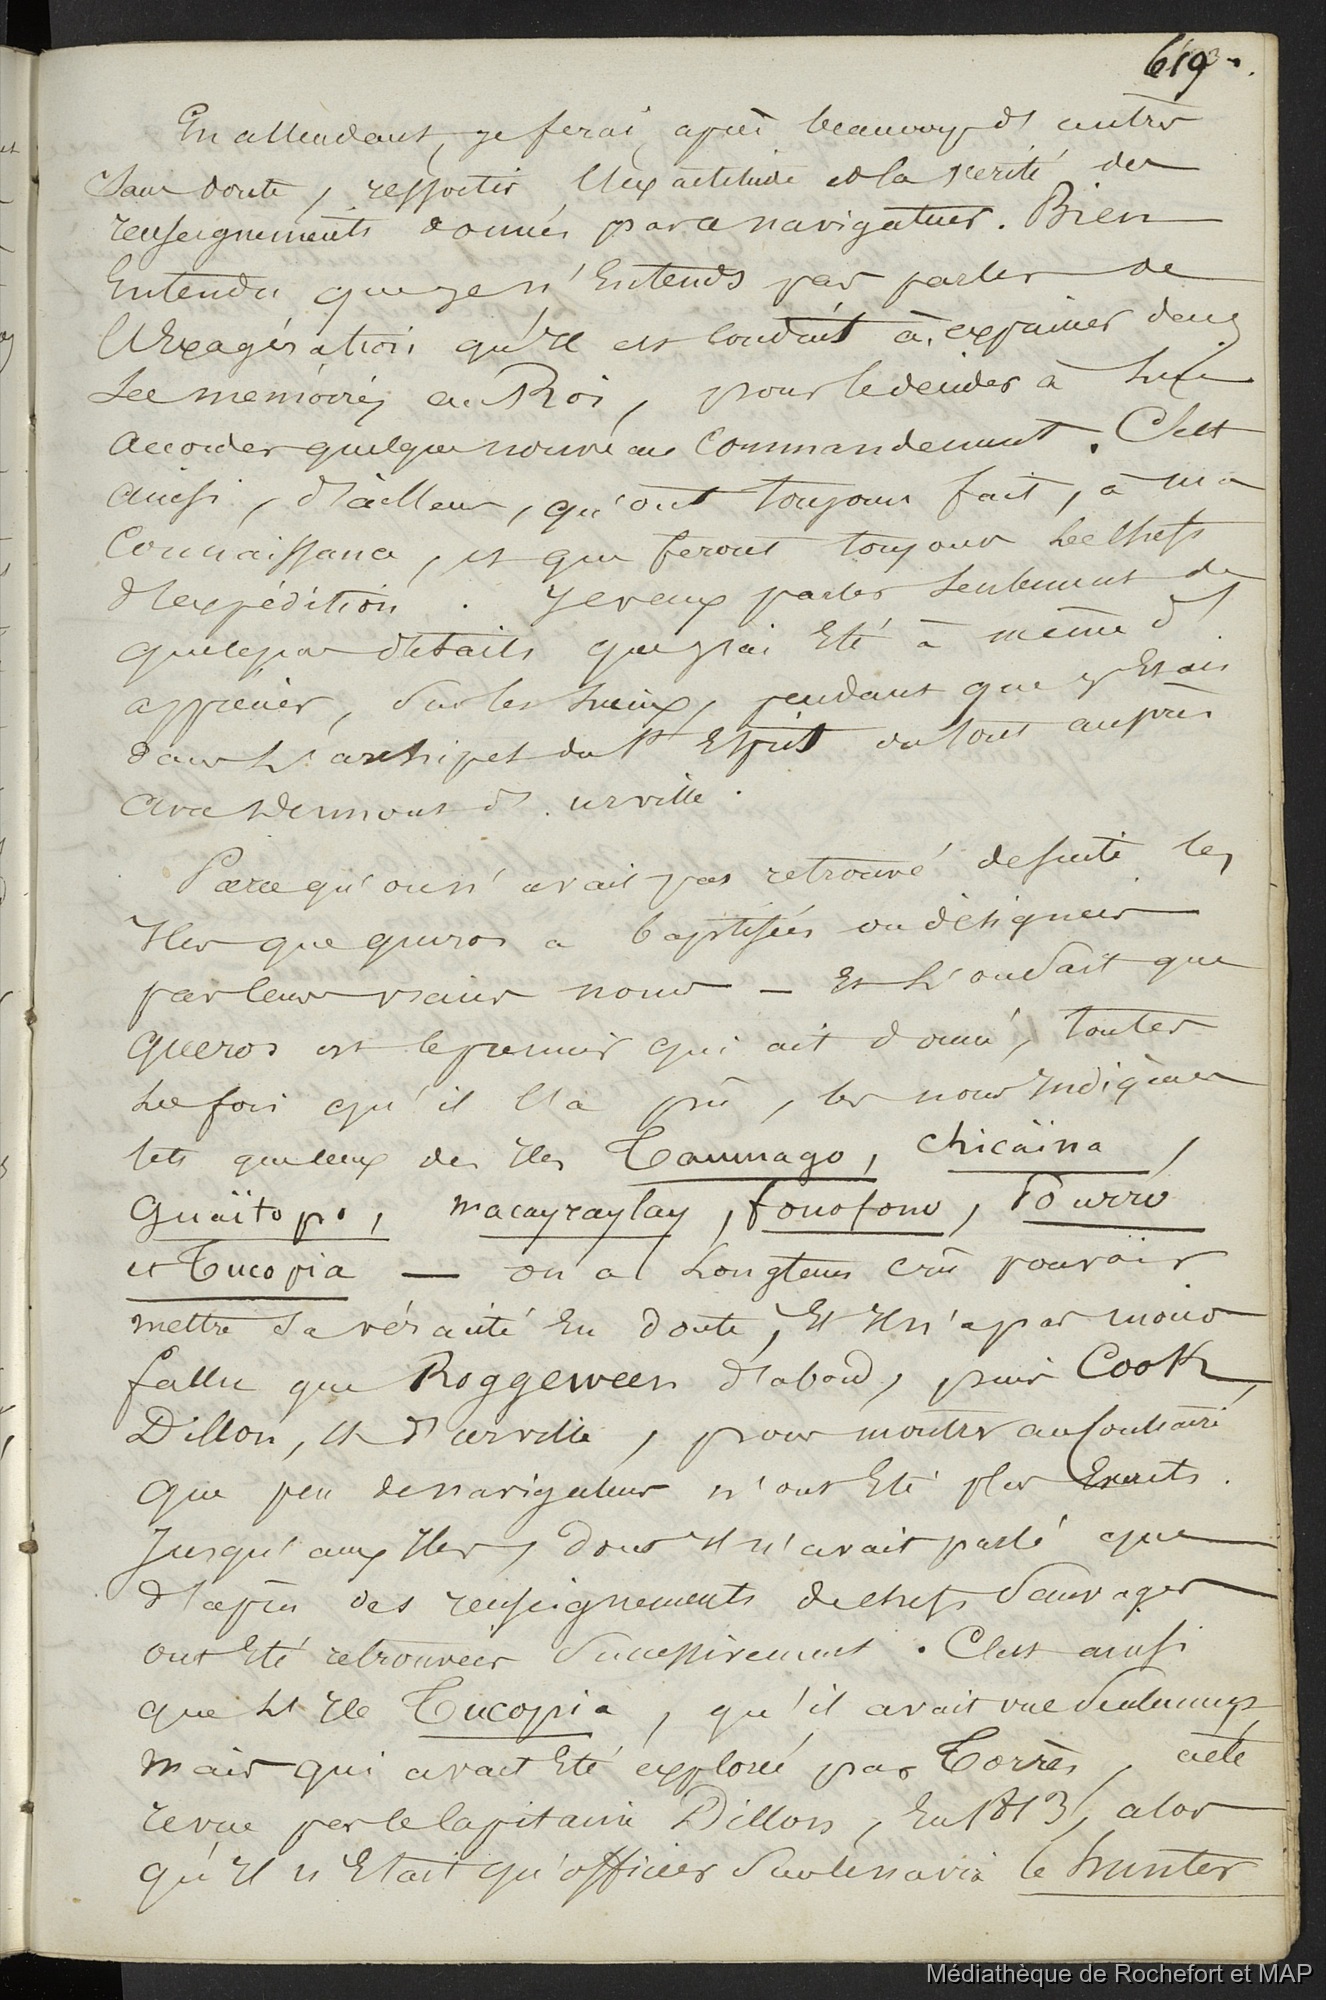 619.
En attendant, je ferai, après beaucoup d'autres
sans doute, ressortir l'exactitude et la verité des
renseignements donnés par ce navigateur. Bien
Entendu que je n'Entends pas parler de
l'Exagération qu'Il est conduit à exprimer dans
Les mémoires au Roi, pour le décider à Lui
accorder quelque nouveau commandement. C'est
ainsi, d'ailleurs, qu'ont toujours fait, à ma
connaissance, et que feront toujours Les chefs
d'expédition. Je veux parler seulement de
quelques détails que j'ai Eté à même d'
apprécier, sur les Lieux, pendant que j'Etais
dans L'archipel du St Esprit ou tout auprès
avec Dumont d'urville.
Parce qu'on n'avait pas retrouvé de suite les
Iles que quiros a baptisées ou désignées
par leurs vrais noms — Et L'on sait que
queros est le premier qui ait donné, toutes
Les fois qu'il l'a pû, les noms Indigènes
tels que ceux des Iles Taumago, chicaïna,
Guaïtopo, macayraylay, fonofono, Pourro
et Tucopia — on a Longtems crû pouvoir
mettre sa véracité En doute, Et Il n'a pas moins
fallu que Roggeween d'abord, puis Cook,
Dillon, Et d'urville, pour montrer au contraire
que peu de navigateurs n'ont Eté plus Exacts.
Jusqu'aux Iles, dont Il n'avait parlé que
d'après des renseignements de chefs Sauvages
ont Eté retrouvées successivement. C'est ainsi
que L'Ile Tucopia, qu'il avait vue seulement,
mais qui avait Eté explorée par Torrès, a été
revue par le Capitaine Dillon, En 1813, alors
qu'Il n'Etait qu'officier sur le navire le hunter
Médiathèque de Rochefort et MAP